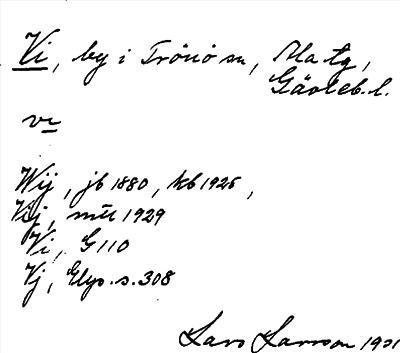 Vi, by i Trönö sn, Ala tg,
Gävleb. l.
vi
Wij, jb 1880, kb 1925,
Vij, mtl 1929
Vi, G 110
Vj, Elgs. s. 308
Lars Larsson 1931